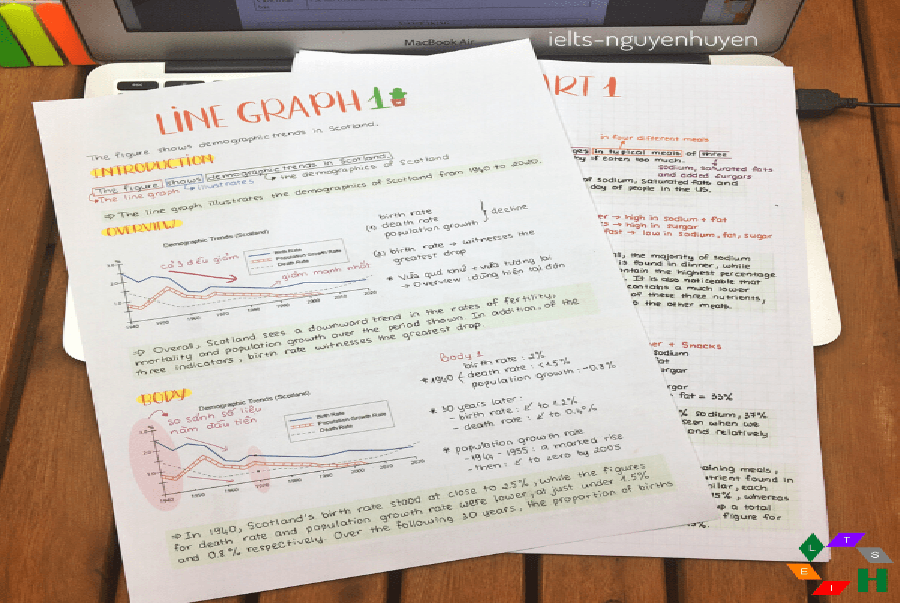 MacBook Air
ielts-nguyenhuyen
LINE GRAPH 1
The figure shows demographic trends in Scotland.
INTRODUCTION
The figure shows demographic trends in Scotland.
The line graph illustrates the demographics of Scotland
⇒ The line graph illustrates the demographics of Scotland from 1940 to 2020.
OVERVIEW
Demographic Trends (Scotland)
Birth Rate
Population Growth Rate
Death Rate
cả 3 đều giảm
giảm mạnh nhất
1940
birth rate
(1) death rate
population growth
decline
(2) birth rate → witnesses the
greatest drop
* Vừa quá khứ + vừa tương lai
→ Overview: dùng hiện tại đơn
⇒ Overall, Scotland sees a downward trend in the rates of fertility,
mortality and population growth over the period shown. In addition, of the
three indicators, birth rate witnesses the greatest drop.
BODY
so sánh số liệu
năm đầu tiên
Demographic Trends (Scotland)
Birth Rate
Population Growth Rate
Death Rate
1940
Body 1
birth rate: 2%
* 1940 { death rate: <1.5%
population growth: -0.8%
* 30 years later:
- birth rate:
- death rate:
* population growth rate
- 1944 - 1955: a marked rise
- then: to zero by 2005
⇒ In 1940, Scotland's birth rate stood at close to 2.5%, while the figures
for death rate and population growth rate were lower, at just under 1.5%
and 0.8% respectively. Over the following 30 years, the proportion of births
ART 1
in four different meals
ges in typical meals of three
y if eaten too much.
sodium, saturated fats
and added sugars
of sodium, saturated fats and
day of people in the US.
er → high in sodium + fat
ts → high in sugar
fast → low in sodium, fat, sugar
the majority of sodium
is found in dinner, while
ntain the highest percentage
. It is also noticeable that
contains a much lower
of these three nutrients,
the other meals.
er + Snacks
sodium
fat
sugar
% sodium, 37%
seen when we
and relatively
aining meals,
trient found in
ilar, each
15%, whereas
⇒ a total
figure for
L
T
S
E
I
H